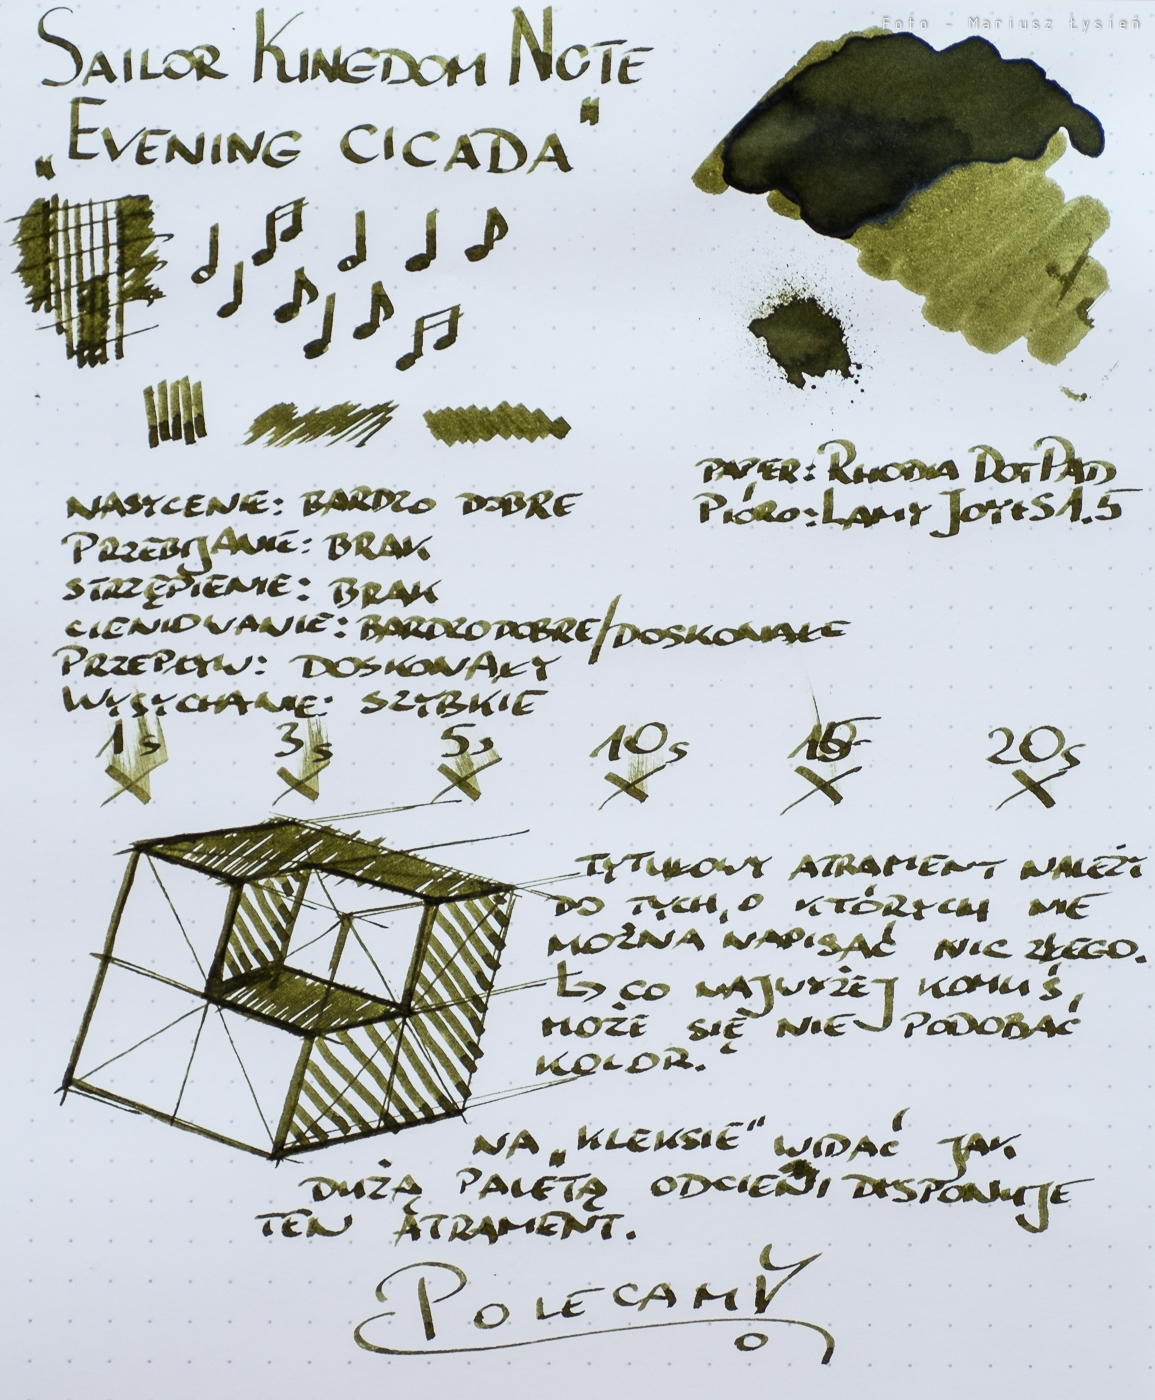 Foto - Mariusz Łysień
SAILOR KINGDOM NOTE
„EVENING CICADA"
PAPER: RHODIA DOTPAD
PIÓRO: LAMY JOY+S 1.5
NASYCENIE: BARDZO DOBRE
PRZEBIJANIE: BRAK
STRZĘPIENIE: BRAK
CIENIOWANIE: BARDZO DOBRE/DOSKONAŁE
PRZEPŁYW: DOSKONAŁY
WYSYCHANIE: SZYBKIE
1s 3s 5s 10s 15 20s
TYTUŁOWY ATRAMENT NALEŻY
DO TYCH, O KTÓRYCH NIE
MOŻNA NAPISAĆ NIC ZŁEGO.
CO NAJWYŻEJ KOMUŚ,
MOŻE SIĘ NIE PODOBAĆ
KOLOR.
NA „KLEKSIE" WIDAĆ JAK
DUŻĄ PALETĄ ODCIENI DYSPONUJE
TEN ATRAMENT.
POLECAMY